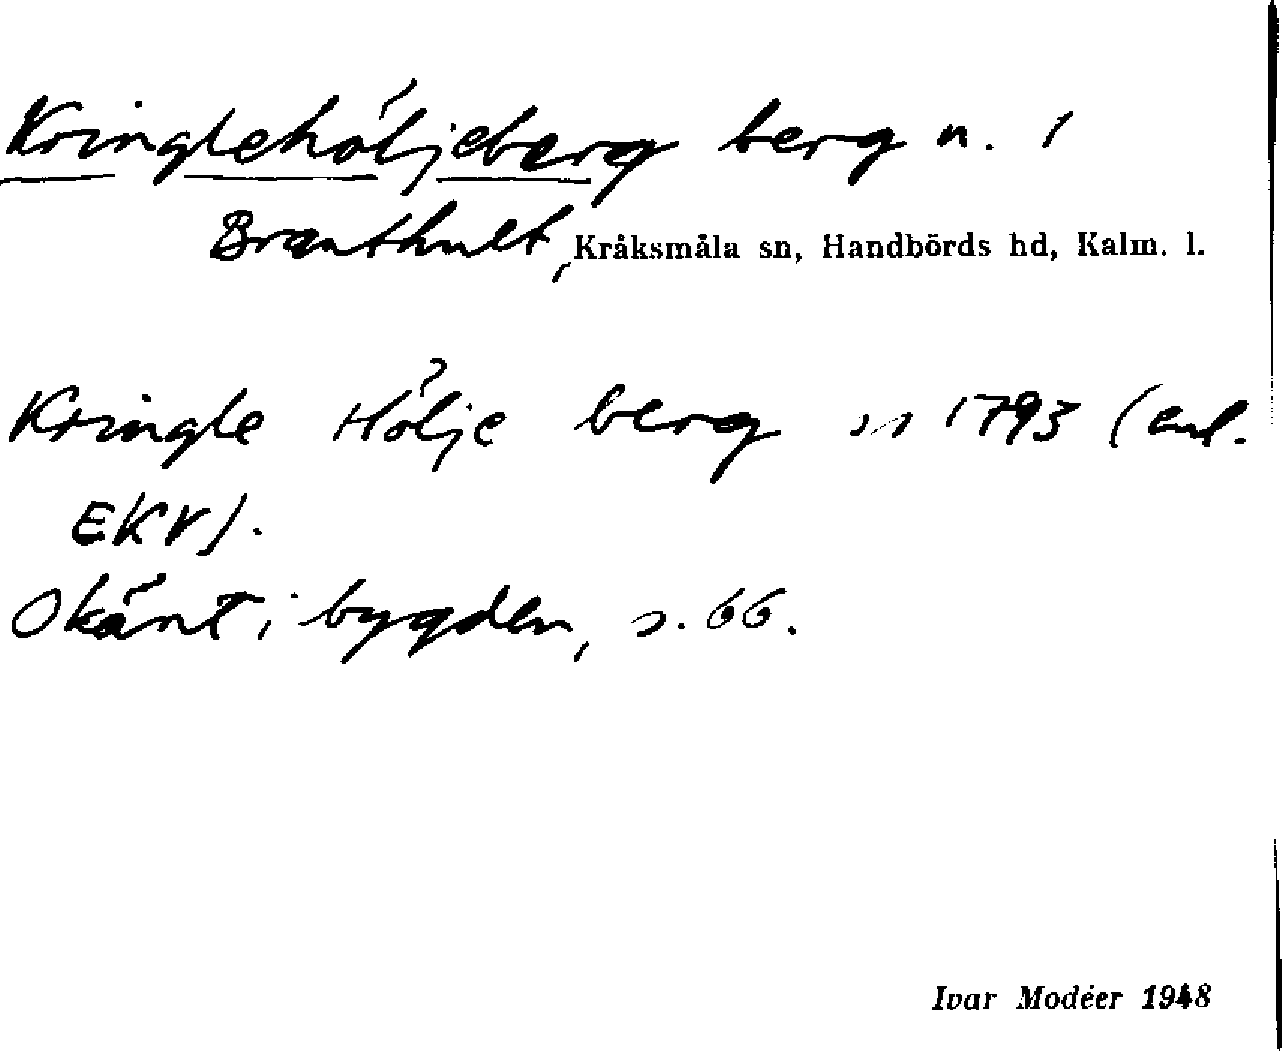 Kringlehöljeberg berg n. i
Branthult, Kråksmåla sn, Handbörds hd, Kalm. l.
Kringle Hölje berg 1793 (enl.
EKV).
Okänt i bygden, s. 66.
Ivar Modéer 1948